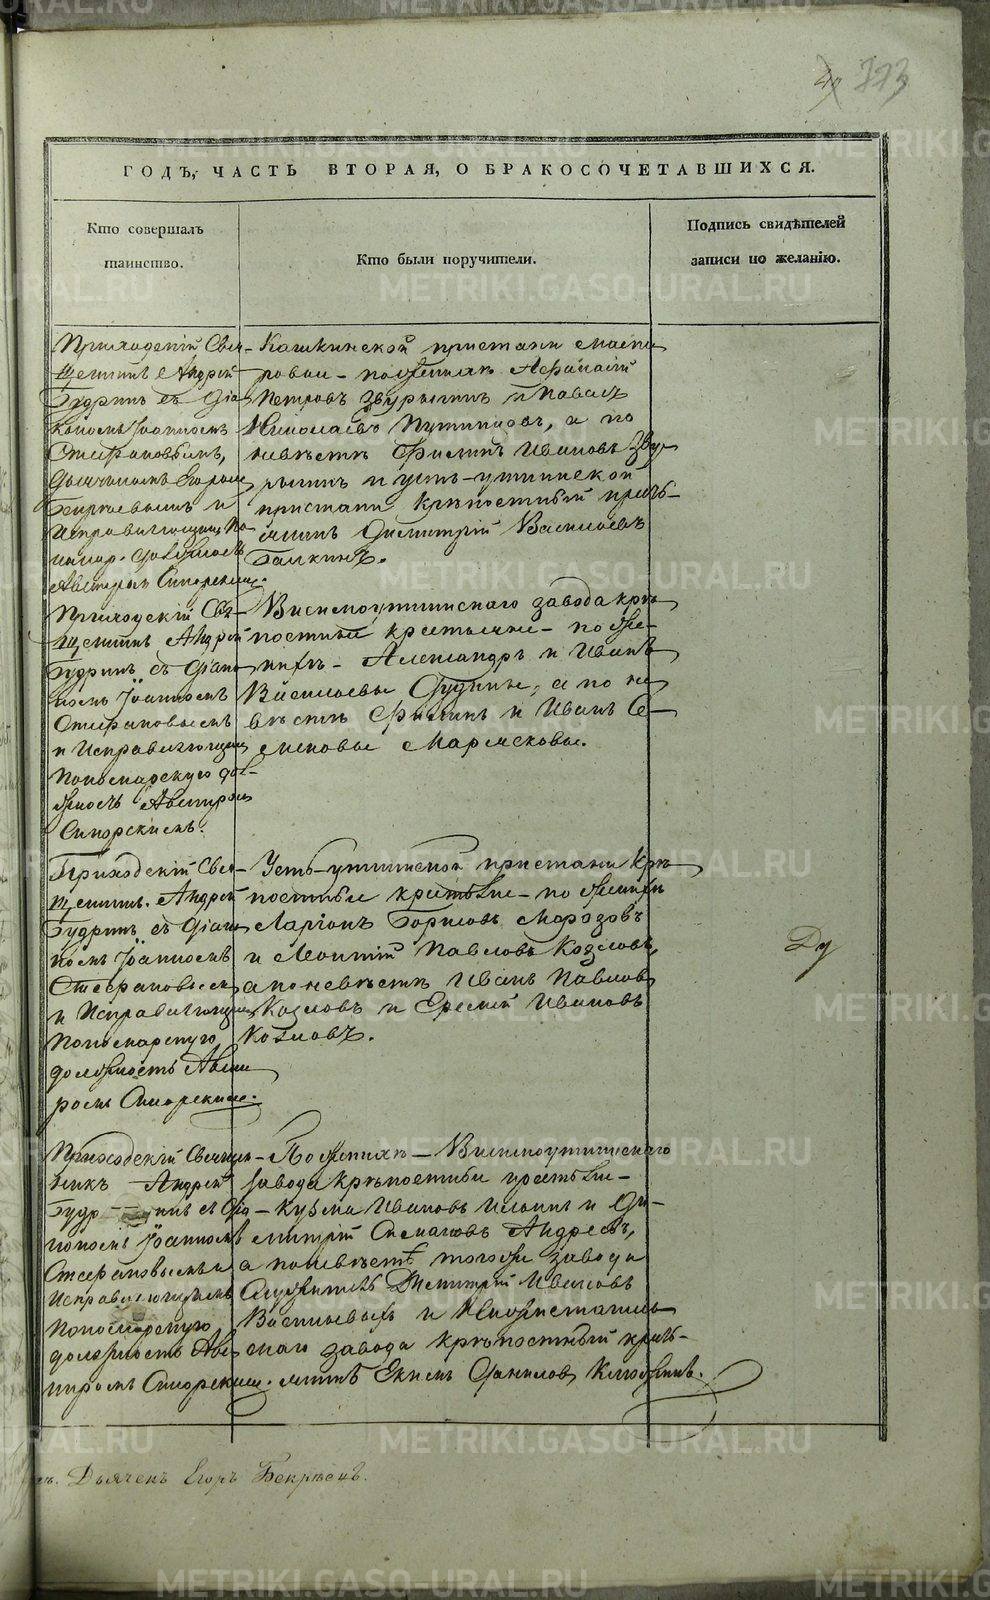 773
ГОДЪ, ЧАСТЬ ВТОРАЯ, О БРАКОСОЧЕТАВШИХСЯ.
Кто совершалъ
таинство.
Кто были поручители.
Подпись свидѣтелей
записи по желанію.
Приходскій Свя-
щенникъ Андрей
Будринъ съ Діа-
кономъ Іоанномъ
Стефановымъ,
Дьячкомъ Егоромъ
и
Исправляющимъ По-
номар. должность
Сморскимъ.
Кашкинской пристани масте-
ровые - по женихѣ Афанасій
Петровъ Звурыгинъ и Павелъ
Николаевъ Путиловъ, а по
невѣстѣ Филипъ Ивановъ Зву-
рыгинъ и Усть-утkinской
пристани Крѣпостный
Димитрій Васильевъ
Балкинъ.
Приходскій Свя-
щенникъ Андрей
Будринъ съ Діако-
номъ Іоанномъ
Стефановымъ
и Исправляющимъ
Пономарскую дол-
жность
Сморскимъ.
Висимоуткинскаго завода крѣ-
постные крестьяне - по же-
нихѣ - Александръ и Иванъ
Васильевы Дудины, а по не-
вѣстѣ Филипъ и Иванъ Се-
меновы Мармсковы.
Приходскій Свя-
щенникъ Андрей
Будринъ съ Діако-
номъ Іоанномъ
Стефановымъ
и Исправляющимъ
Пономарскую
должность
Сморскимъ.
Усть-уткинской пристани Крѣ-
постные - по женихѣ
Ларіонъ Борисовъ Морозовъ
и Леонтій Павловъ Козловъ,
а по невѣстѣ Иванъ Павловъ
Козловъ и Еремей Ивановъ
Козловъ.
Приходскій Священ-
никъ Андрей
Будринъ съ Діа-
кономъ Іоанномъ
Стефановымъ и
Исправляющимъ
Пономарскую
должность
Сморскимъ.
По женихѣ - Висимоуткинскаго
завода крѣпостные
Кузма Ивановъ Ильинъ и Ди-
митрій Андреевъ,
а по невѣстѣ тогоже завода
Служитель Димитрій Ивановъ
Васильевыхъ и
скаго завода крѣпостный
Екимъ Даниловъ Клюжинъ.
Дьячекъ Егоръ